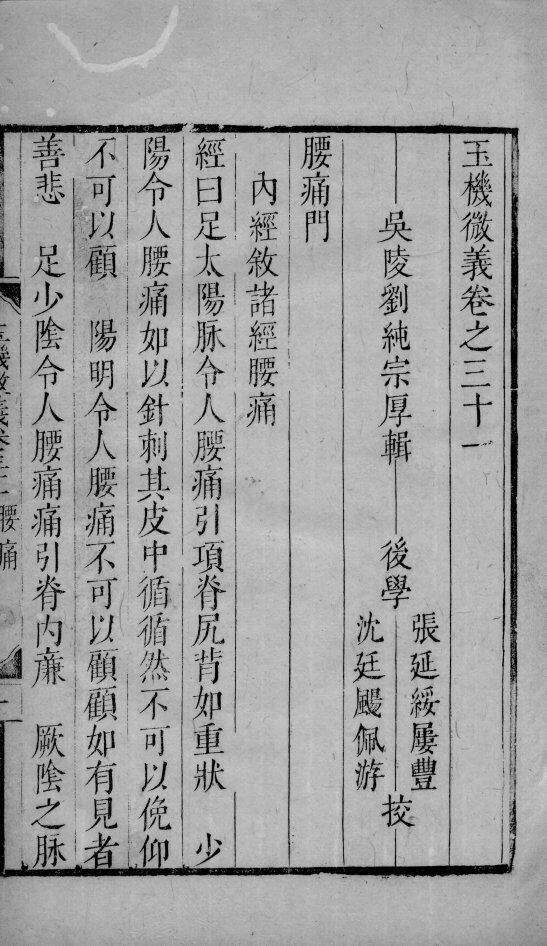 玉機微義卷之三十一
吳陵劉純宗厚輯　後學　張延綏屢豐　沈廷颺佩游　挍
腰痛門
內經敘諸經腰痛
經曰足太陽脉令人腰痛引項脊尻背如重狀　少
陽令人腰痛如以針刺其皮中循循然不可以俛仰
不可以顧　陽明令人腰痛不可以顧顧如有見者
善悲　足少陰令人腰痛痛引脊內亷　厥陰之脉
腰痛